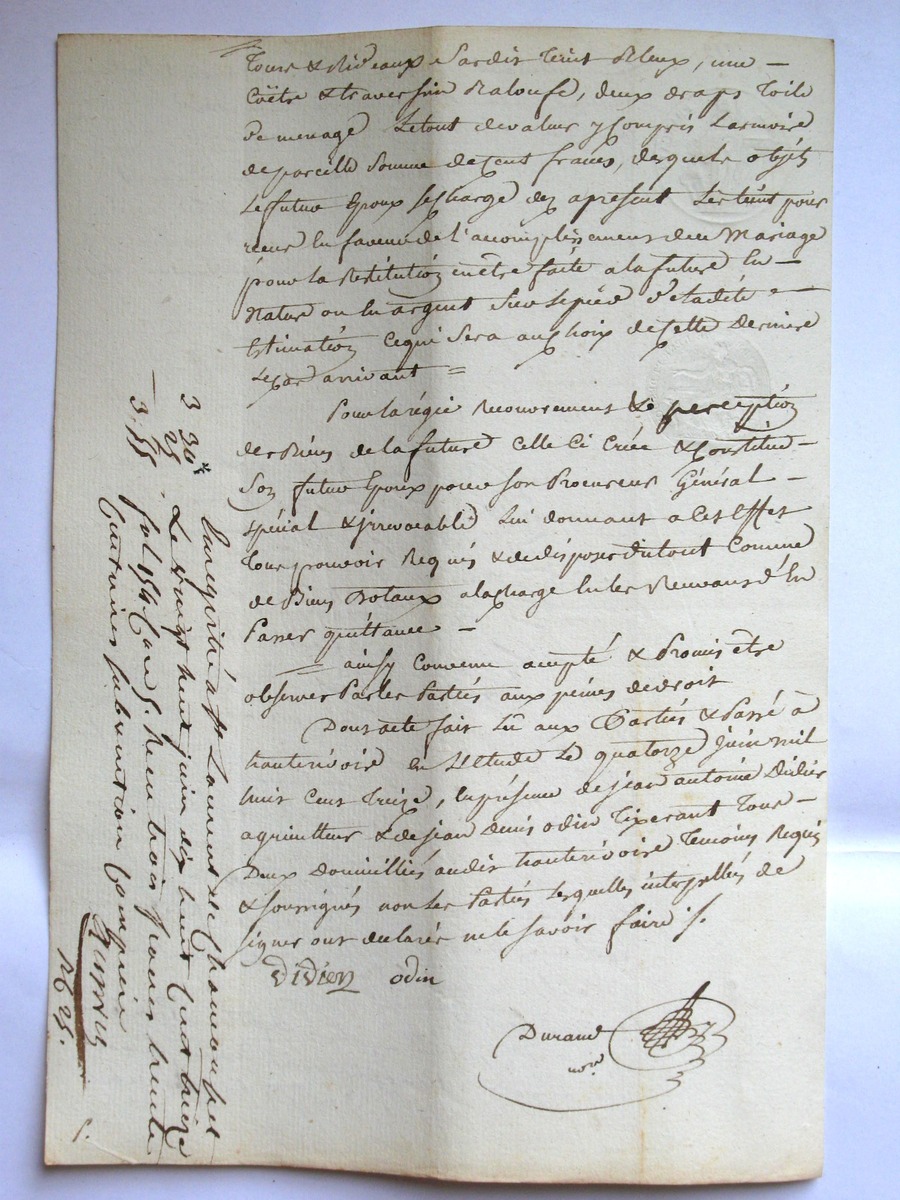 tour & Rideaux Sardis teint bleux, une —
Coëtre & traversin Balouse, deux draps toile
de menage Le tout de valeur y Compris Larmoire
de pareille Somme de Cent francs, desquels objéts
Le futur Epoux se charge dez apresent Les tient pour
reçus En faveur de l'acomplissement du Mariage
pour la Restitution en être faite a la future En —
Nature ou En argent Sur le pied de ladite
Estimation Ce qui Sera au Choix de Cette Derniere
Le Cas arrivant =
Pour la régie Recouvrement & perception
des Biens de la future Celle Ci Crée & Constitue —
Son futur Epoux pour son Procureur Général —
spécial & irrevocable Lui donnant a Ces Effets
tous pouvoir Requis & de disposer du tout Comme
de Biens Dotaux a la charge En les Recevant d'En
Passer quittance —
= ainsy Convenu acepté & Promis être
observer Par les Partiés aux peines de droit
Dont acte fait Lû aux Partiés & Passé a
hauterivoire En L'Etude Le quatorze juin mil
huit Cent treize, En présence de jean antoine Didier
agriculteur & de jean Denis odin Tixerant tous —
Deux Domicilliés audit hauterivoire Temoins Requis
& soussignés non Les Partiés Lesquelles interpellées de
signer ont declarés ne le savoir faire ./.
Didier odin
Durand
nore
Enregistré a St Laurent de Chamousset
Le vingt huit juin dix huit Cent treize
fol 154 Case 5. Reçu trois francs trente
Centimes subvention Comprise
3 30
25
3.55
R 625.